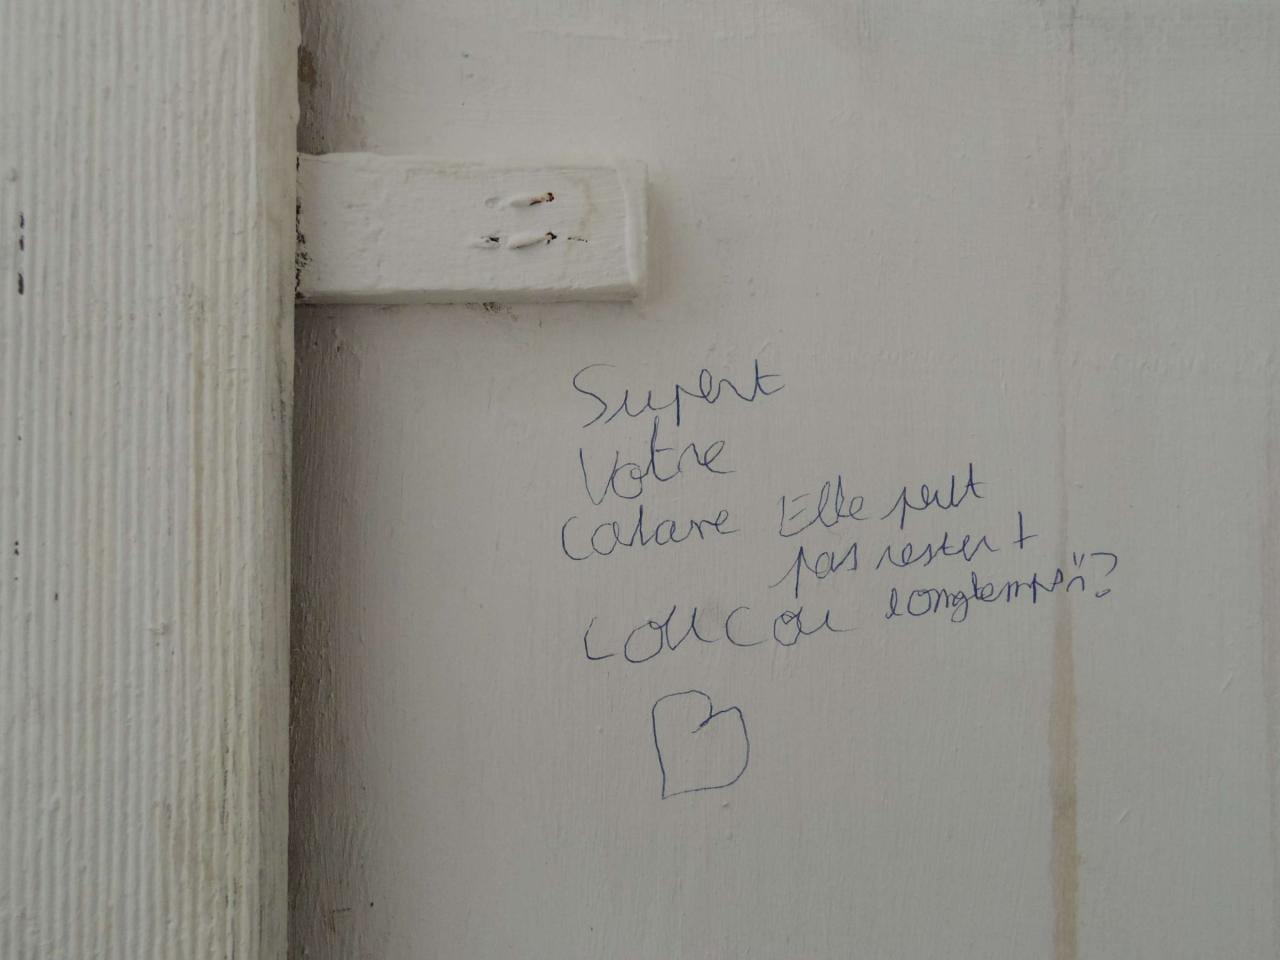 Supert
Votre
Cabane Elle peut
pas rester +
longtemps ?
COUCOU